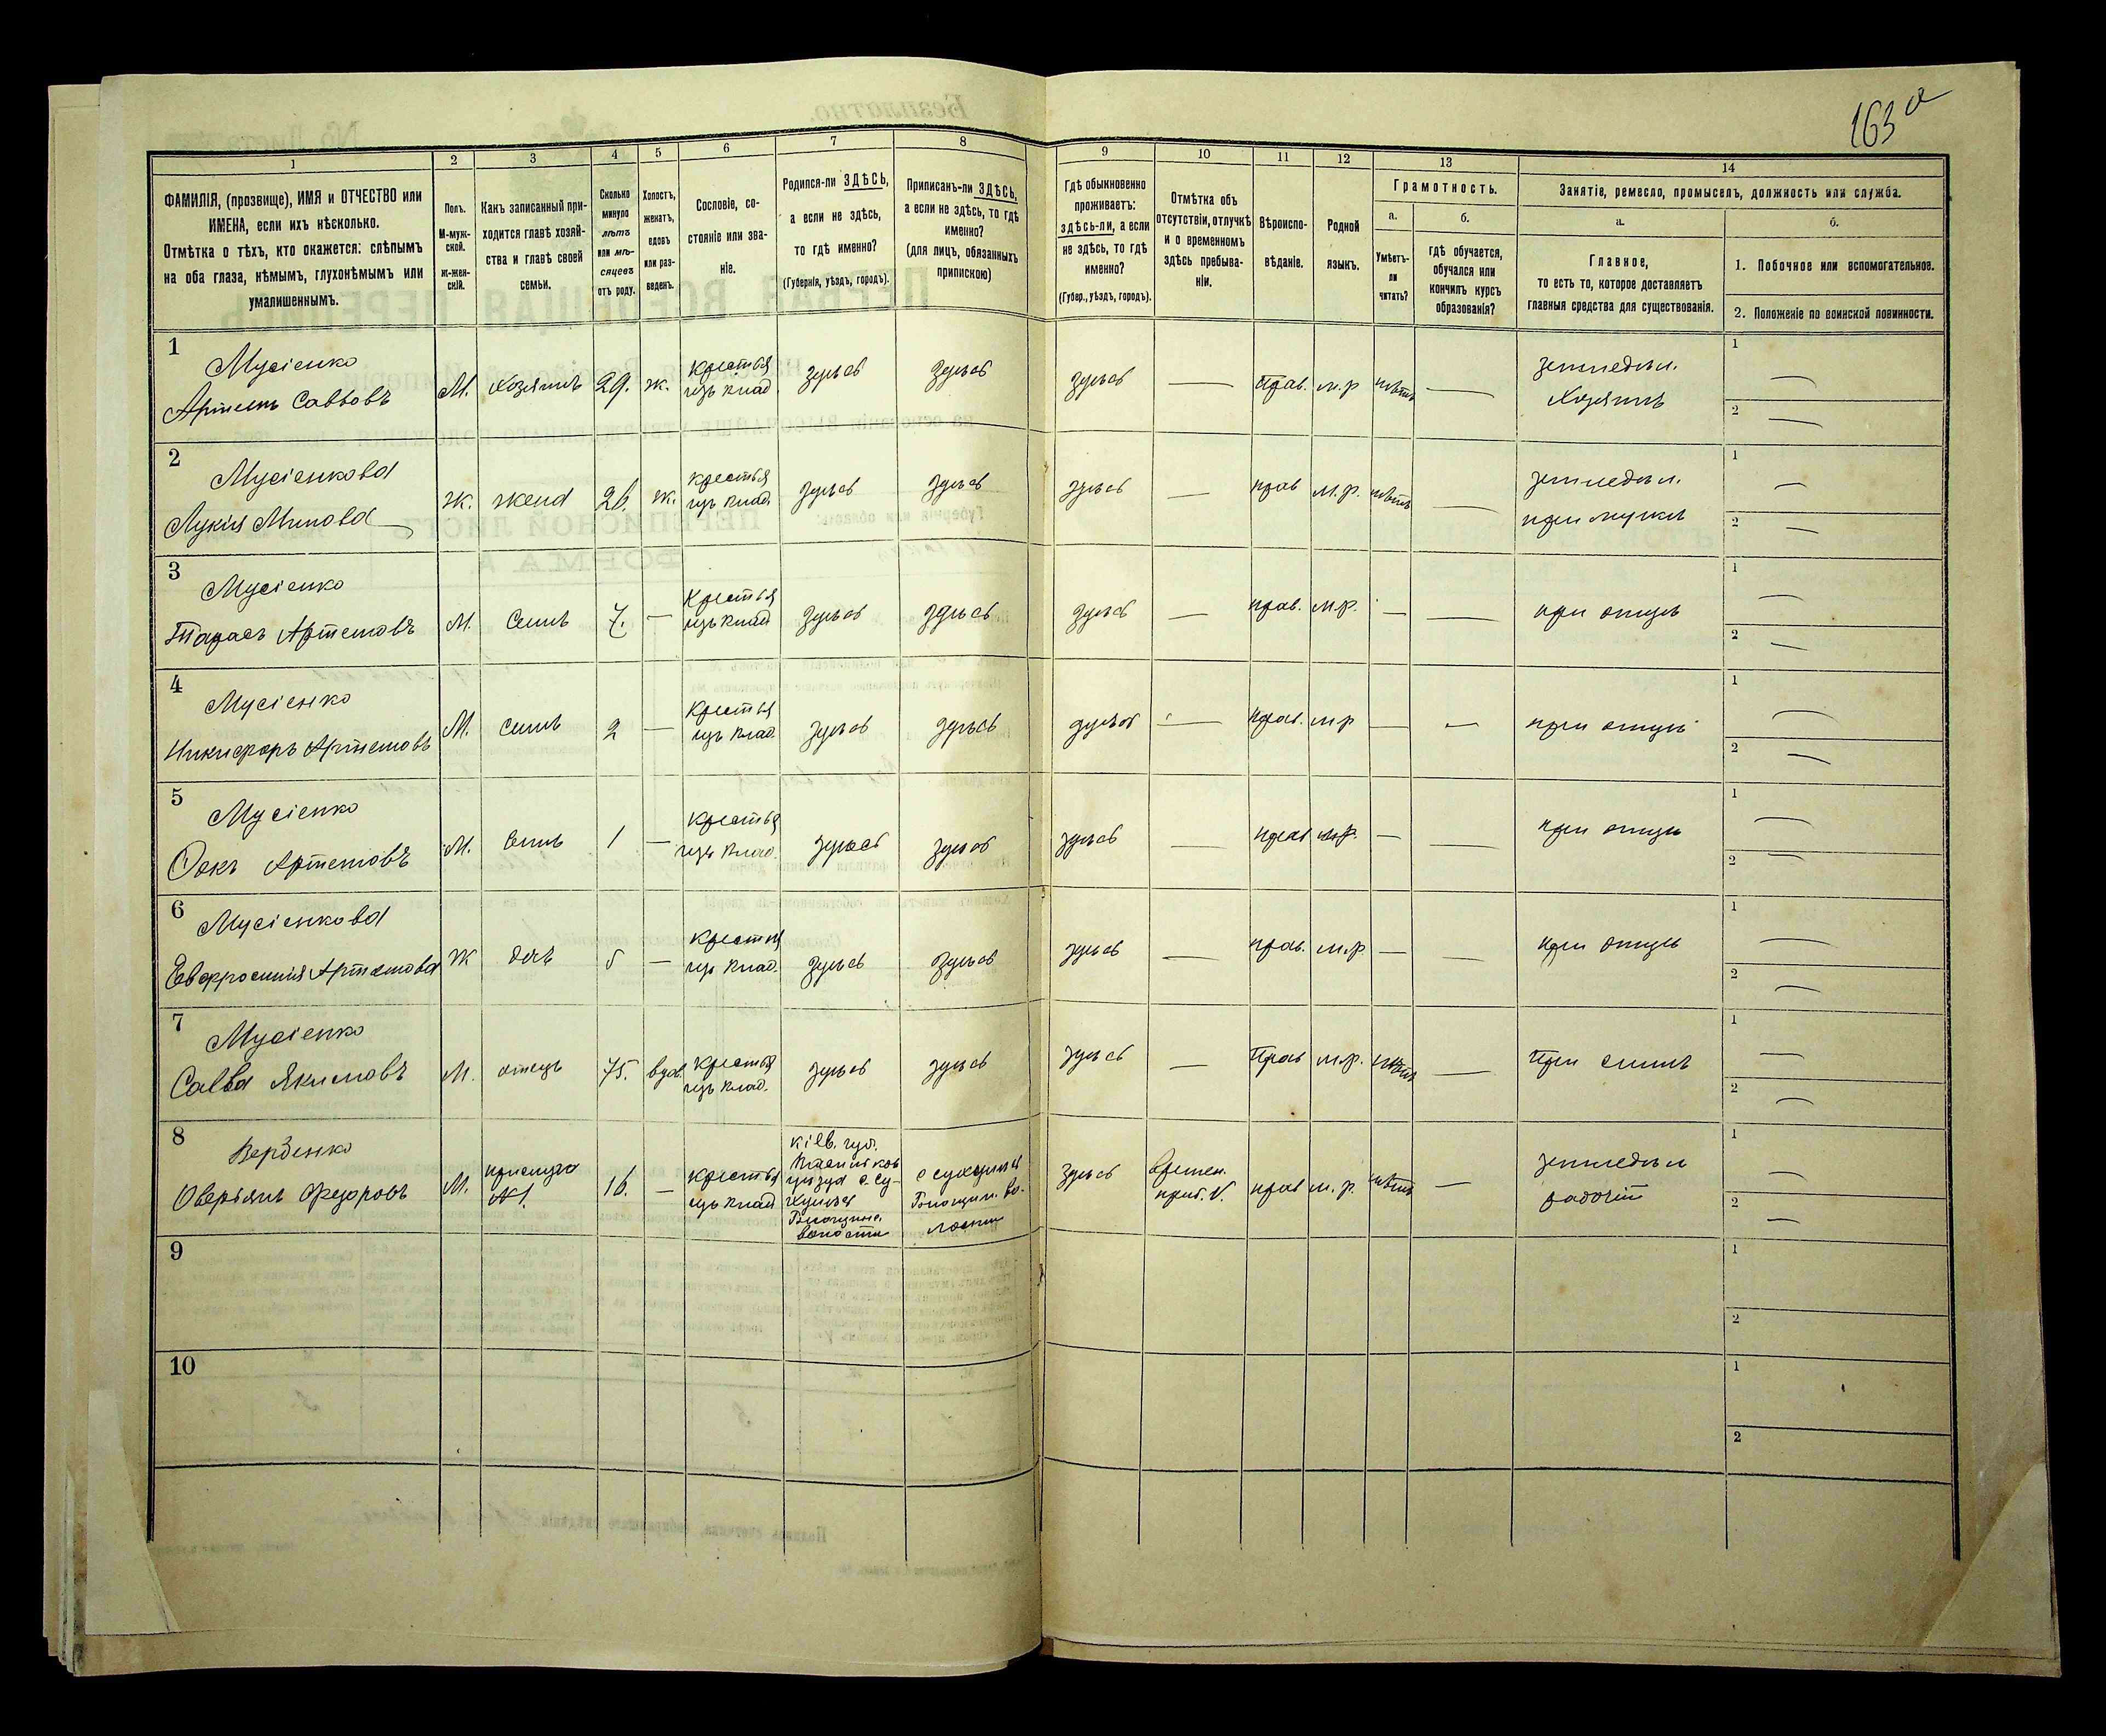 163 а
1
ФАМИЛІЯ, (прозвище), ИМЯ и ОТЧЕСТВО или
ИМЕНА, если ихъ нѣсколько.
Отмѣтка о тѣхъ, кто окажется: слѣпымъ
на оба глаза, нѣмымъ, глухонѣмымъ или
умалишеннымъ.
2
Полъ.
М-муж-
ской.
ж-жен-
скій.
3
Какъ записанный при-
ходится главѣ хозяй-
ства и главѣ своей
семьи.
4
Сколько
минуло
лѣтъ
или мѣ-
сяцевъ
отъ роду.
5
Холостъ,
женатъ,
вдовъ
или раз-
веденъ.
6
Сословіе, со-
стояніе или зва-
ніе.
7
Родился-ли ЗДѢСЬ,
а если не здѣсь,
то гдѣ именно?
(Губернія, уѣздъ, городъ).
8
Приписанъ-ли ЗДѢСЬ,
а если не здѣсь, то гдѣ
именно?
(для лицъ, обязанныхъ
припискою)
9
Гдѣ обыкновенно
проживаетъ:
здѣсь-ли, а если
не здѣсь, то гдѣ
именно?
(Губер., уѣздъ, городъ).
10
Отмѣтка объ
отсутствіи, отлучкѣ
и о временномъ
здѣсь пребыва-
ніи.
11
Вѣроиспо-
вѣданіе.
12
Родной
языкъ.
13
Грамотность.
а.
Умѣетъ-
ли
читать?
б.
гдѣ обучается,
обучался или
кончилъ курсъ
образованія?
14
Занятіе, ремесло, промыселъ, должность или служба.
а.
Главное,
то есть то, которое доставляетъ
главныя средства для существованія.
б.
1. Побочное или вспомогательное.
2. Положеніе по воинской повинности.
1
Мусіенко
Артемъ Саввовъ
М.
Хозяинъ
29.
ж.
Крестья
изъ влад.
здѣсь
здѣсь
здѣсь
—
Прав.
м.р
нѣтъ
—
земледѣл.
Хозяинъ
1 —
2 —
2
Мусіенкова
Лукія Минова
ж.
жена
26.
ж.
крестья
изъ влад.
здѣсь
здѣсь
здѣсь
—
прав
м.р.
нѣтъ
—
земледѣл.
при мужѣ
1 —
2 —
3
Мусіенко
Тарасъ Артемовъ
М.
Сынъ
7.
—
Крестья
изъ влад
здѣсь
здѣсь
здѣсь
—
прав.
м.р.
—
—
при отцѣ
1 —
2 —
4
Мусіенко
Никифоръ Артемовъ
М.
сынъ
2
—
Крестья
изъ влад.
здѣсь
здѣсь
здѣсь
—
прав.
м.р
—
—
при отцѣ
1 —
2 —
5
Мусіенко
Артемовъ
М.
Сынъ
1
—
Крестья
изъ влад.
здѣсь
здѣсь
здѣсь
—
прав
м.р.
—
—
при отцѣ
1 —
2 —
6
Мусіенкова
Евфросинія Артемова
Ж
дочь
5
—
Крестья
изъ влад.
здѣсь
здѣсь
здѣсь
—
прав.
м.р.
—
—
при отцѣ
1 —
2 —
7
Мусіенко
Савва Якимовъ
М.
отецъ
75.
вдов.
Крестья
изъ влад.
здѣсь
здѣсь
здѣсь
—
Прав
м.р.
нѣтъ
—
при сынѣ
1 —
2 —
8
Оверьянъ Федоровъ
М.
прислуга
№ 1.
16.
—
крестья
изъ влад
кіев. губ.
уѣзда с. Су-
волости
волости
здѣсь
времен.
преб. V.
прав
м.р.
нѣтъ
—
земледѣл
рабочій
1 —
2 —
9
1
2
10
1
2